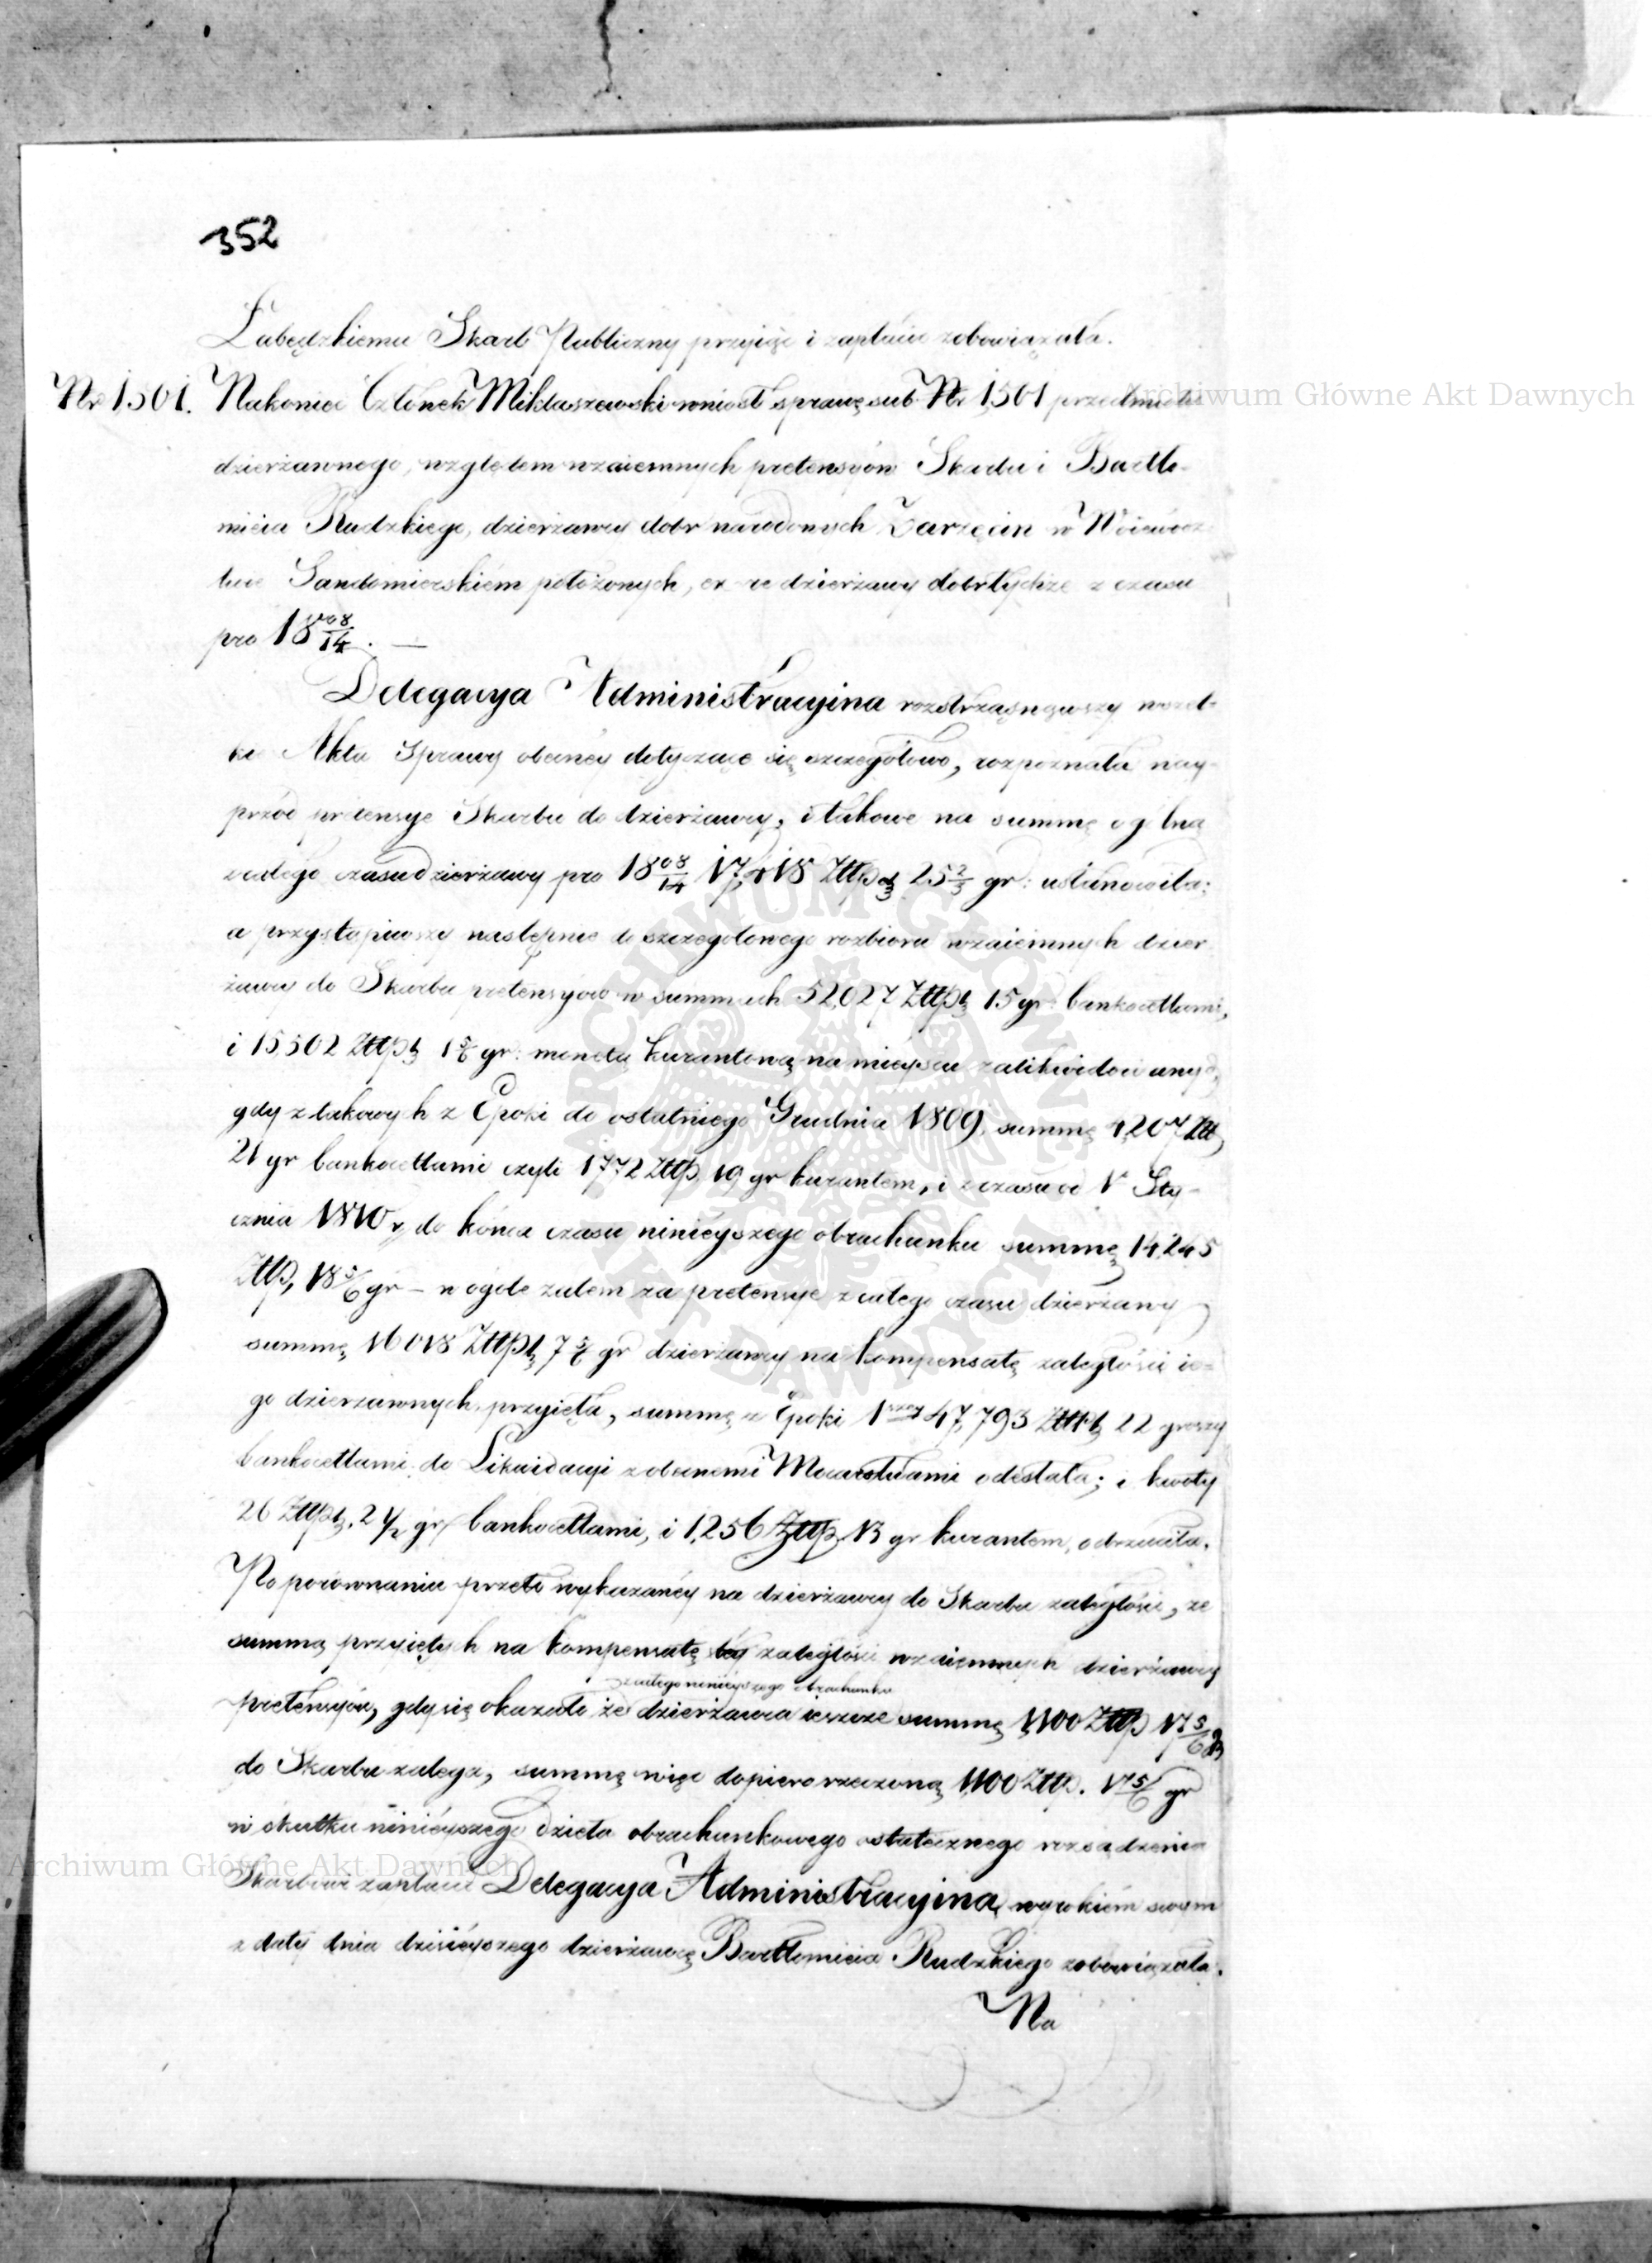 352
Łabędzkiemu Skarb Publiczny przyiąć i zapłacić zobowiązała.
Nr 1501. Nakoniec Członek Mikłaszewski wniósł sprawę sub Nr 1501 przedmiotu
dzierżawnego, względem wzaiemnych pretensyów Skarbu i Bartło-
mieia Rudzkiego, dzierżawcy dobr narodowych Zarzecin w Woiewódz-
twie Sandomierskiém położonych, ex re dzierżawy dobr tychże z czasu
pro 18 08/14. —
Delegacya Administracyina roztrząsnąwszy wszel-
kie Akta Sprawy obecnéy dotyczące się szczegółowo, rozpoznała nay-
przód pretensye Skarbu do dzierżawcy, i takowe na summę ogólną
z całego czasu dzierżawy pro 18 08/14 17,118 Złtp. 25 2/3 gr: ustanowiła;
a przystąpiwszy następnie do szczegółowego rozbioru wzaiemnych dzier-
żawcy do Skarbu pretensyów w summach 52,027 Złtp. 15 gr: bankocetlami,
i 15,502 Złtp. 1 5/6 gr: monetą kurantową na mieyscu zalikwidowanych,
gdy z takowych z Epoki do ostatniego Grudnia 1809, summę 4,207 Złt,
21 gr bankocetlami czyli 1772 Złtp. 19 gr kurantem, i z czasu od 1° Sty-
cznia 1810 r. do końca czasu ninieyszego obrachunku summę 14,245
Złtp. 18 5/6 gr – w ogóle zatem za pretensye z całego czasu dzierżawy
summę 16018 Złtp. 7 5/6 gr dzierżawcy na kompensatę zaległości ie-
go dzierżawnych, przyięła, summę z Epoki 1szey 47,793 Złtp. 22 groszy
bankocetlami do Likwidacyi z obcemi Mocarstwami odesłała; i kwoty
26 Złtp. 2 1/2 gr bankocetlami, i 1,256 Złtp. 13 gr kurantem, odrzuciła.
Po porównaniu przeto wykazanéy na dzierżawcy do Skarbu zaległości, ze
summą przyiętych na kompensatę téy zaległości wzaiemnych dzierżawcy
z całego ninieyszego obrachunku
pretensyów, gdy się okazało że dzierżawca ieszcze summę 1,100 Złtp 17 5/6 gr
do Skarbu zalega, summę więc dopiero rzeczoną 1,100 Złtp. 17 5/6 gr
w skutku ninieyszego dzieła obrachunkowego ostatecznego rozsądzenia
Skarbowi zapłacić Delegacya Administracyina, wyrokiem swym
z daty dnia dzisieyszego dzierżawcę Bartłomieia Rudzkiego zobowiązała.
Na
Archiwum Główne Akt Dawnych
Archiwum Główne Akt Dawnych
ARCHIWUM GŁÓWNE AKT DAWNYCH